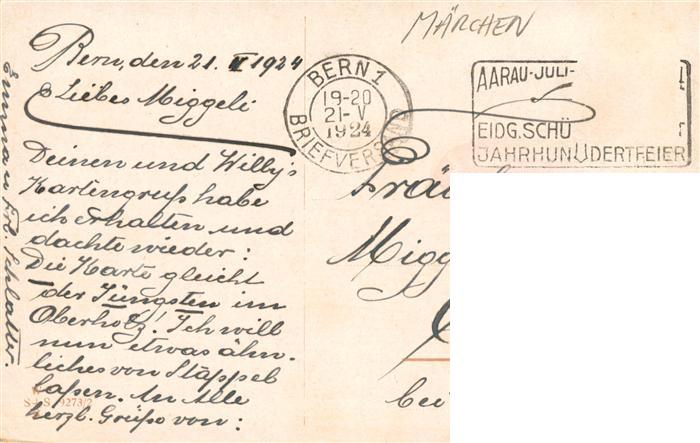 MÄRCHEN
Bern, den 21. V 1924
Liebes Miggeli
Deinen und Willy's
Kartengruß habe
ich erhalten und
dachte wieder:
Die Karte gleicht
der Jüngsten im
Oberholz! Ich will
nun etwas ähn-
liches von Stappel
laßen. An Alle
herzl. Grüße von:
S.I.S. 9273/2
BERN 1
19-20
21-V
1924
BRIEFVERSAND
AARAU-JULI-
EIDG. SCHÜ
JAHRHUNDERTFEIER
Frä
Migg
bei